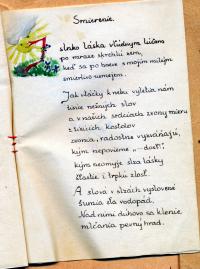 Smierenie.
slnko láska vľúdnym lúčom
po mraze skrehlú zem,
keď sa po boku s mojím milým
zmierlivo usmejem.
Jak vtáčky k nebu vyletia nám
tisíce nežných slov
a v našich srdciach zvony mieru
z tisícich kostolov
zvonia, radostne vyzváňajú,
kým nepovieme „dosť!",
kým neomyje slza lásky
šťastie i trpkú zlosť.
A slová v slzách vyslovené
šumia sťa vodopád.
Nad nimi dúhovo sa klenie
mlčania pevný hrad.